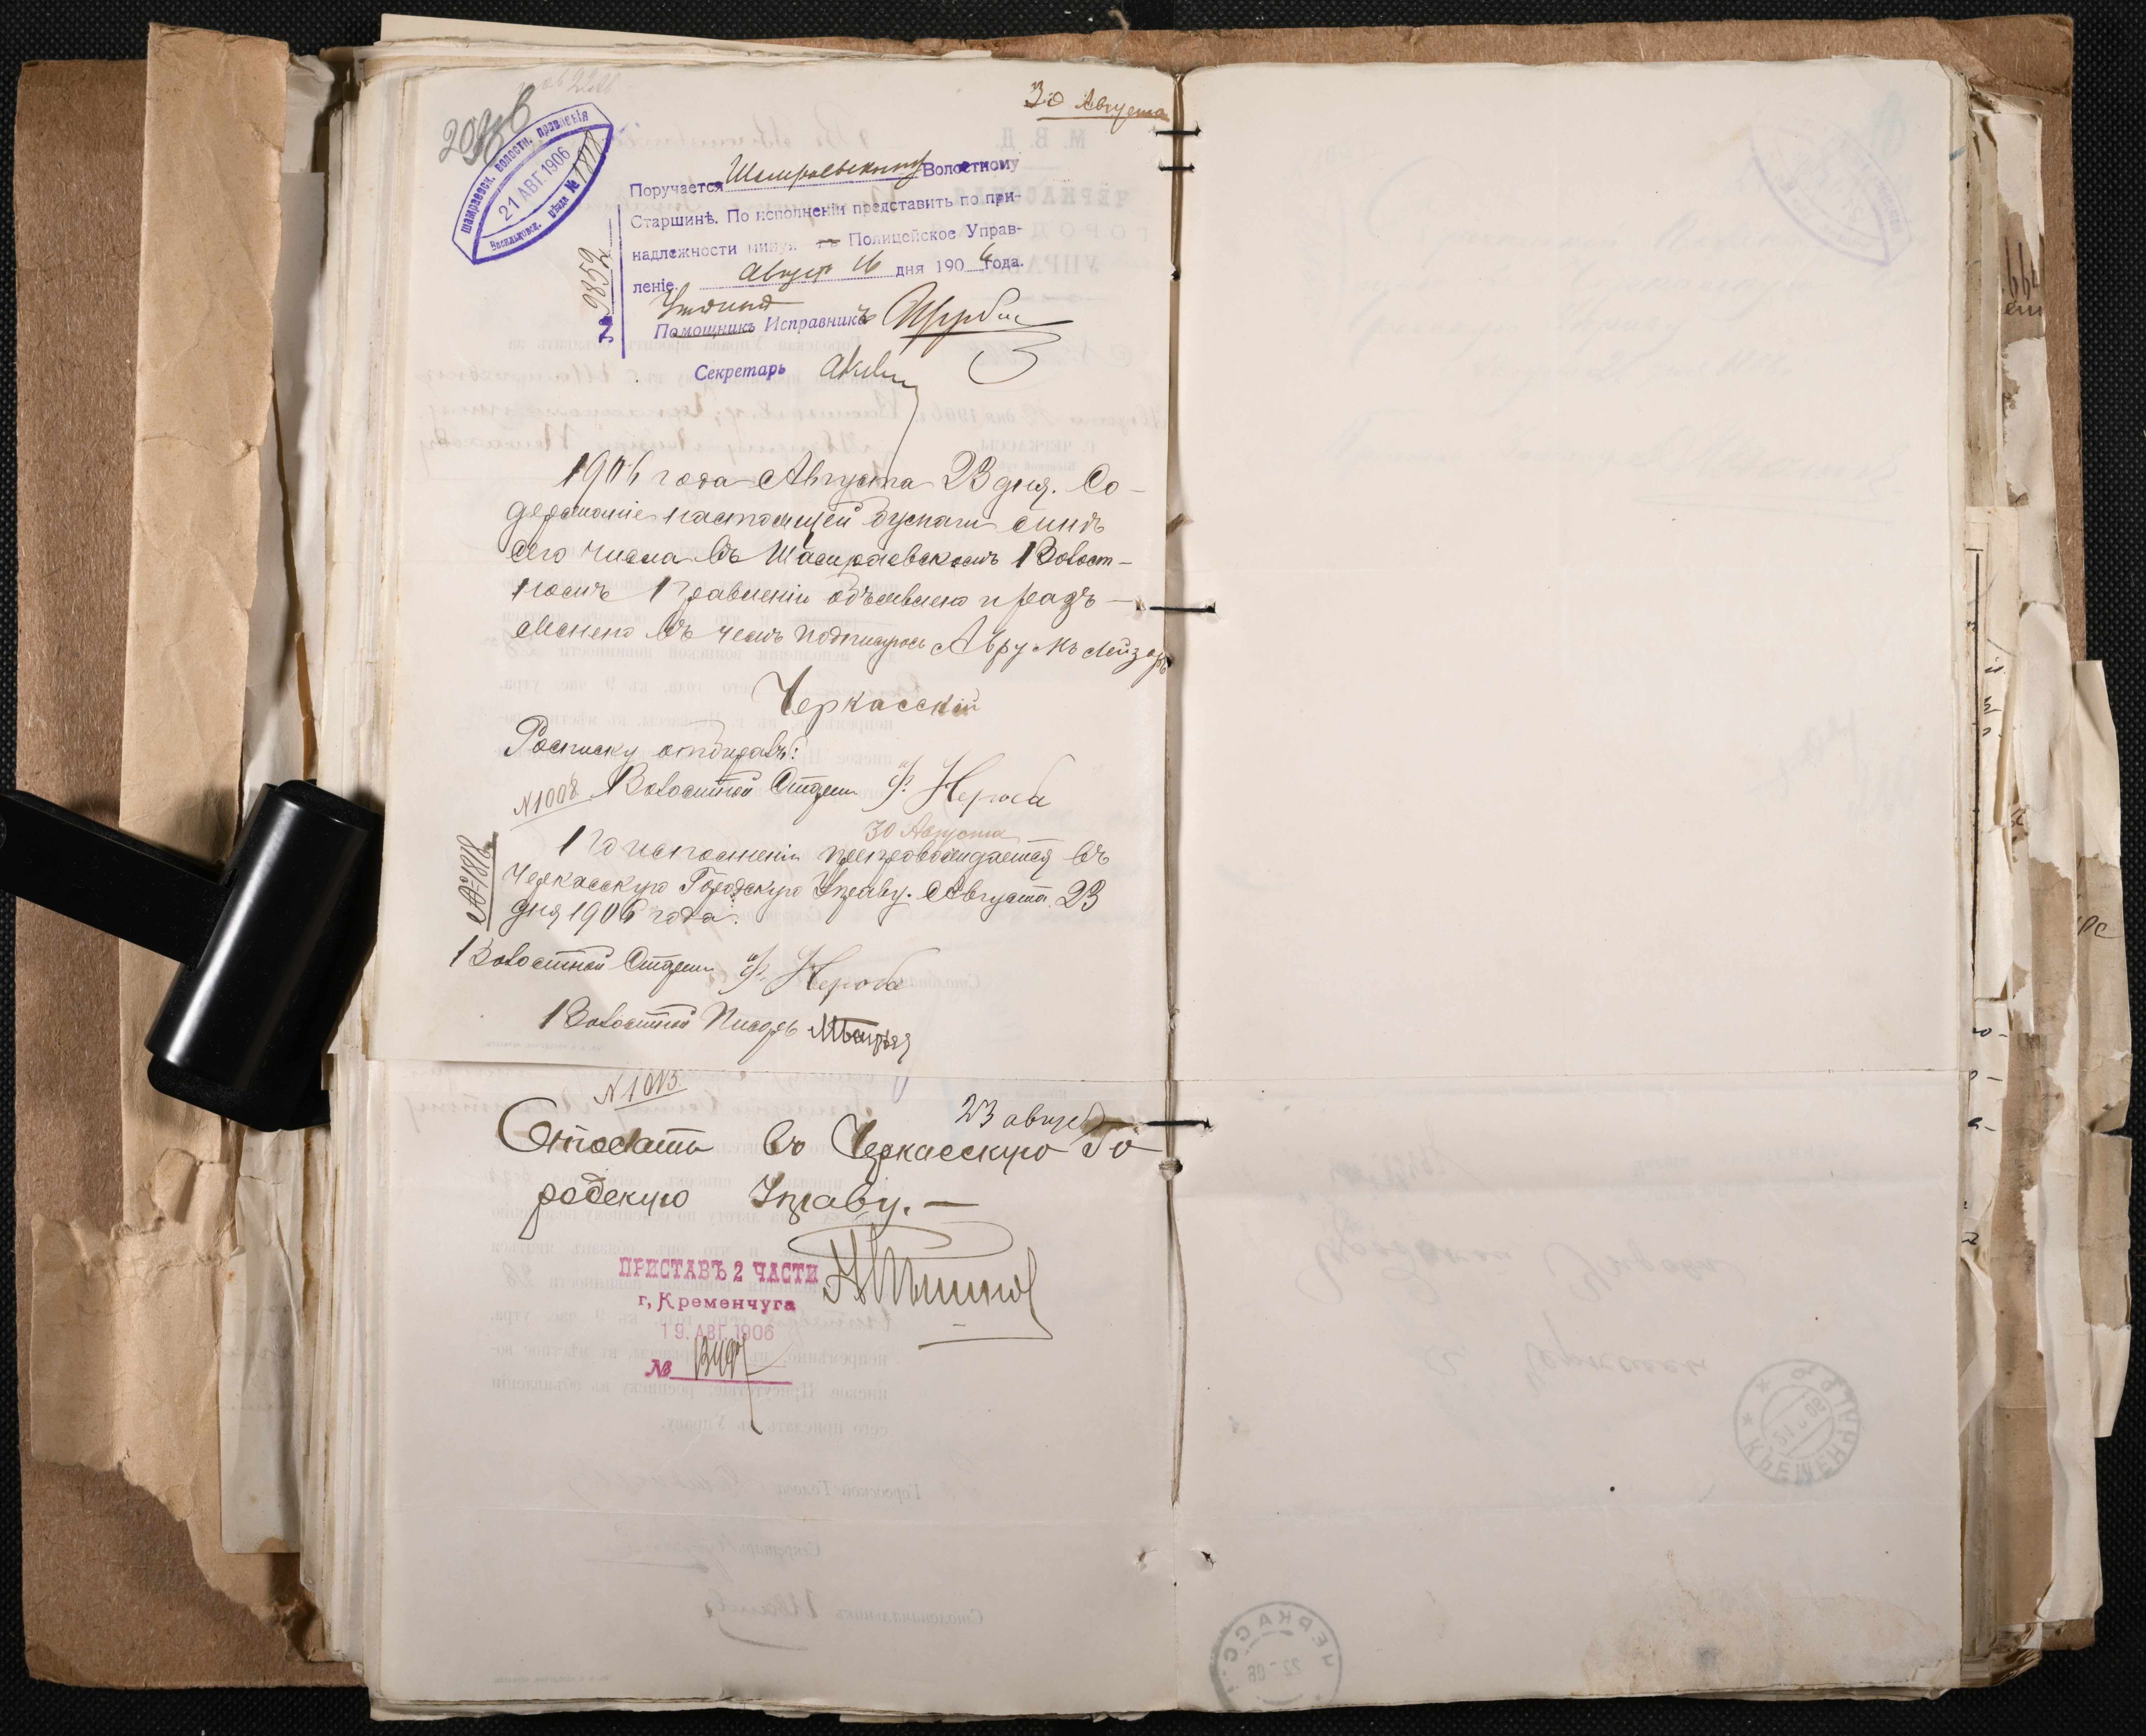 30 Августа
Шамраевск. волостн. правленія
21 АВГ. 1906
Васильковск. уѣзда № 1818
№ 9852
Поручается Шамраевскому Волостному
Старшинѣ. По исполненіи представить по при-
надлежности минуя Полицейское Управ-
леніе. Август 16 дня 1906 года.
Помощникъ Исправника
Секретарь
1906 года Августа 23 дня. Со-
держаніе настоящей бумаги мнѣ
сего числа въ Шамраевскомъ Волост-
номъ Правленіи объявлено и разъ-
яснено въ чемъ подпишусь Аврумъ Лейзоръ
Черкасскій
Росписку отбиралъ:
№ 1008 Волостной Старш. Ф. Нероба
30 Августа
По исполненіи препровождается въ
Черкасскую Городскую Управу. Августа 23
дня 1906 года.
№ 1818
Волостной Старш. Ф. Нероба
Волостной Писарь
№ 1013
23 август
Отослать въ Черкасскую Го
родскую Управу. —
ПРИСТАВЪ 2 ЧАСТИ
г. Кременчуга
19. АВГ. 1906
№